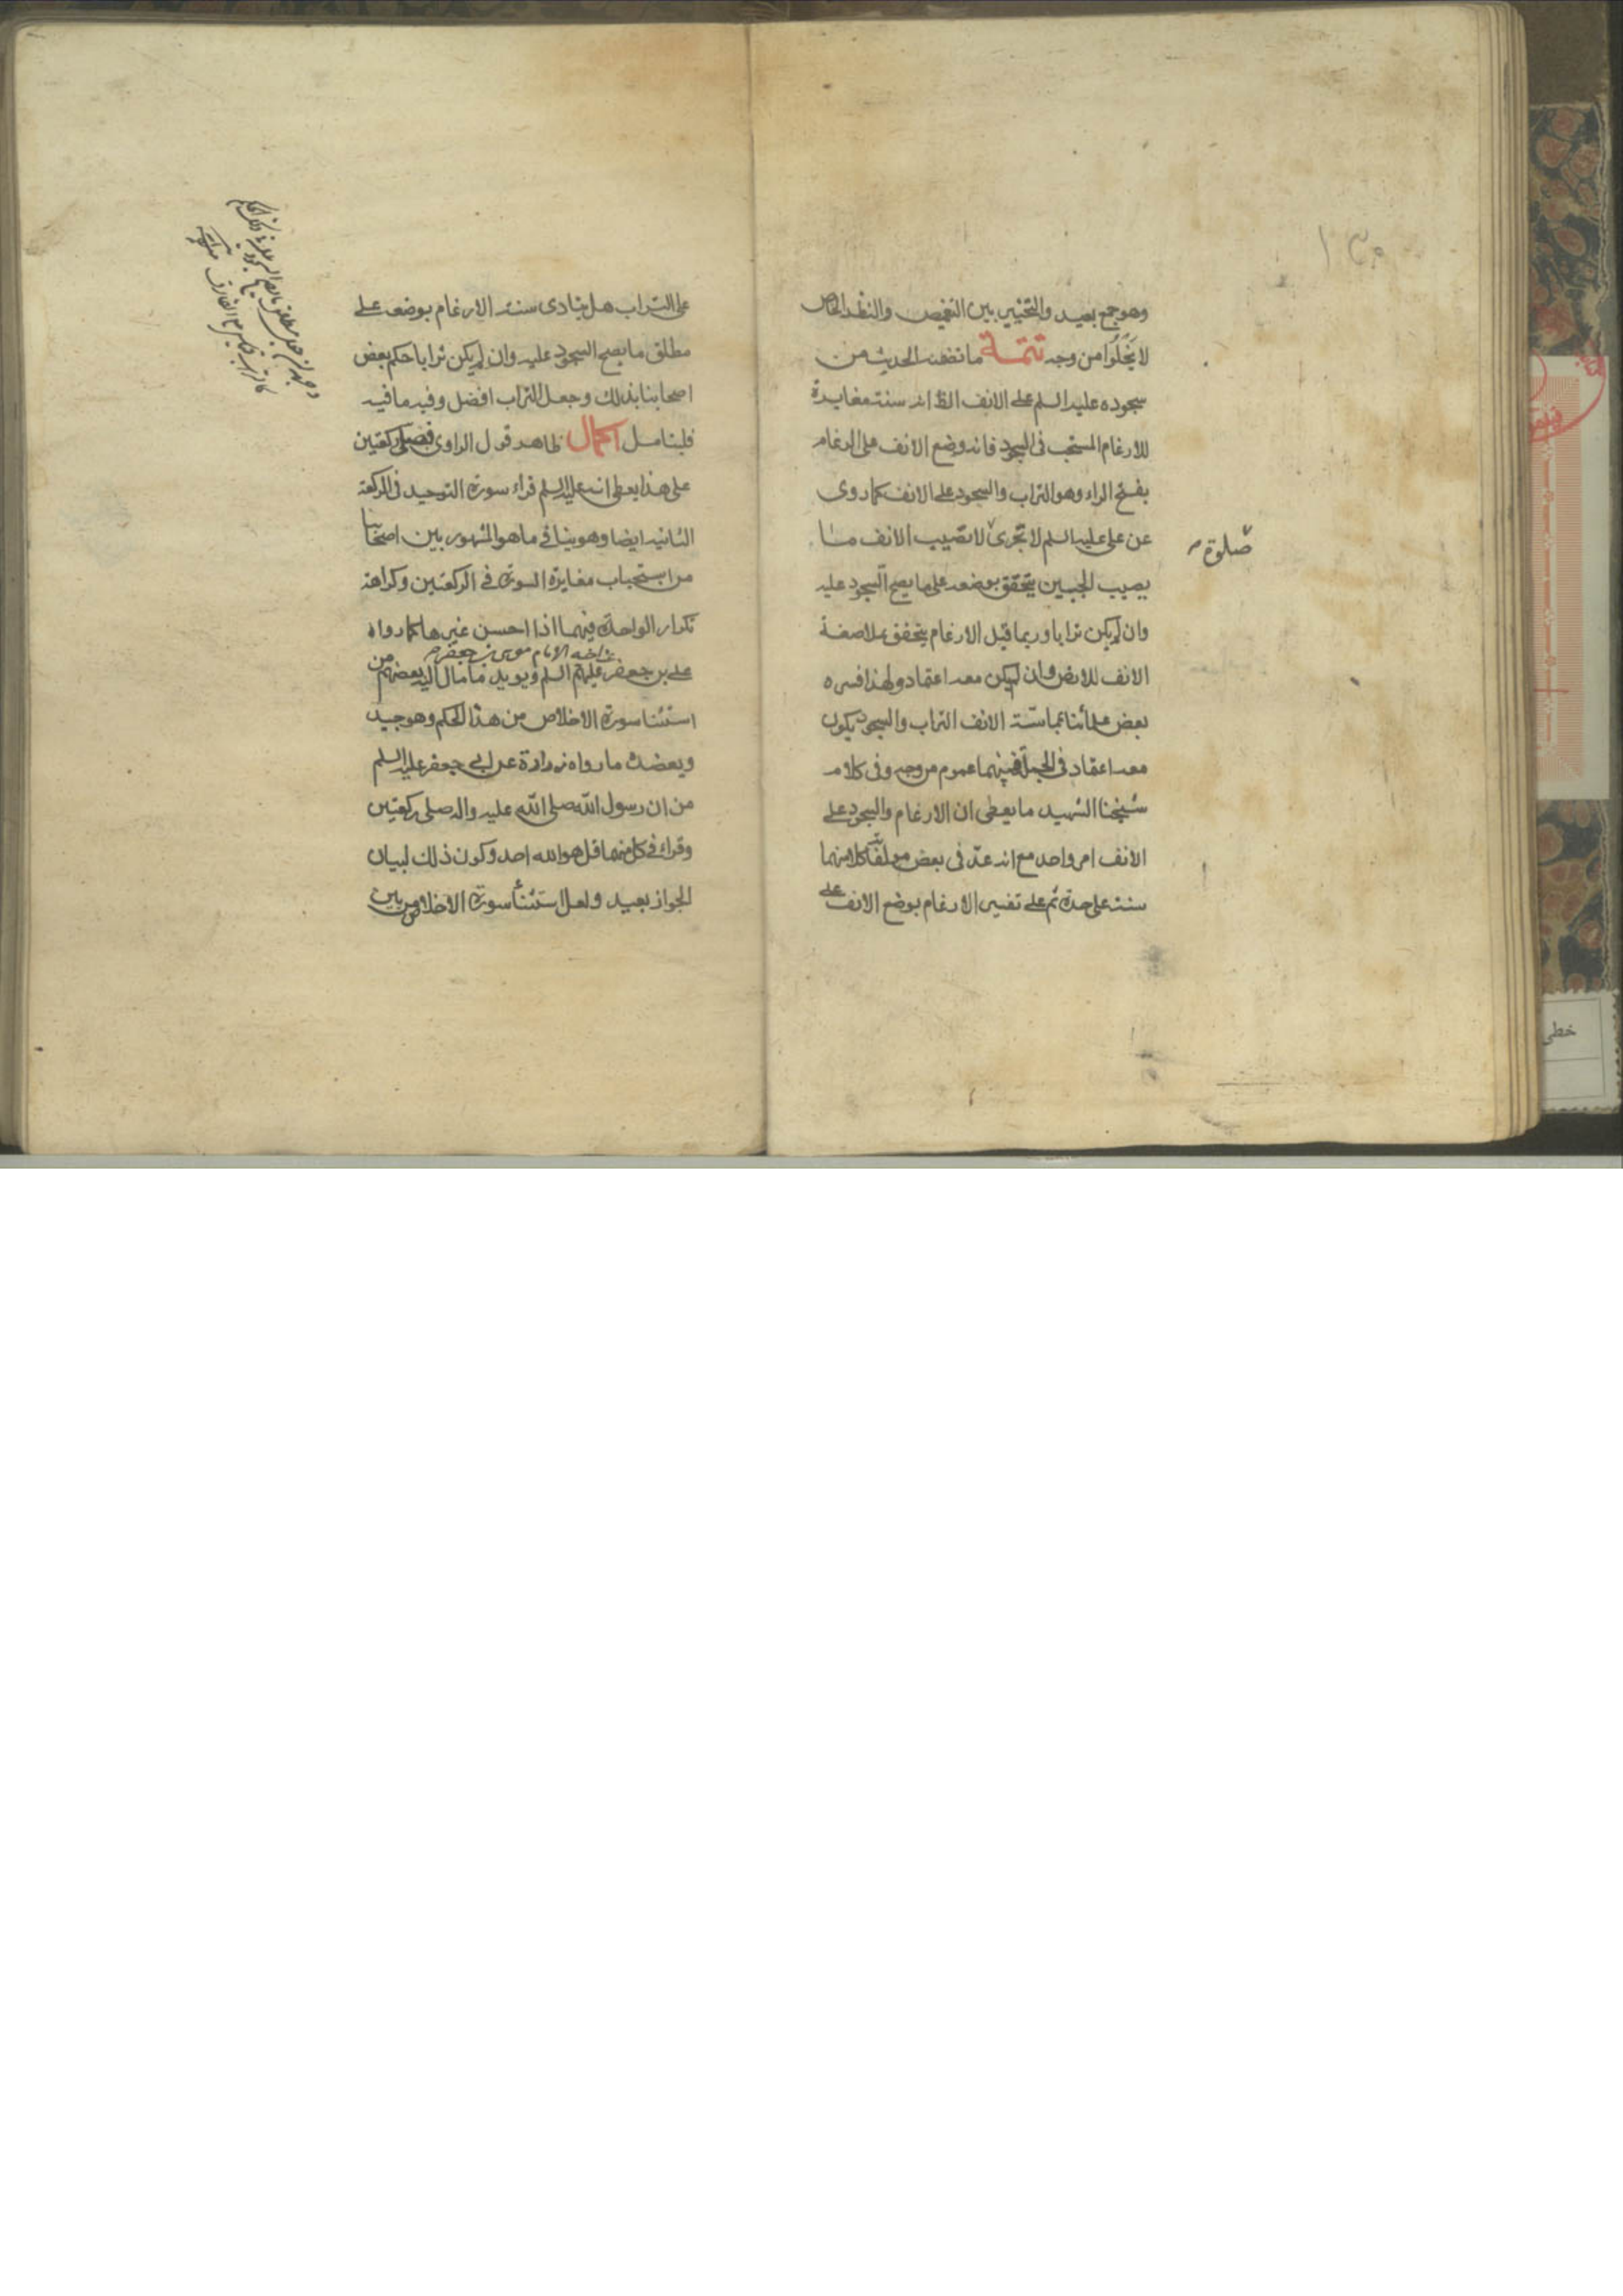 ١٣٥
وهو جمع بعيد والتخيير بين التغميض والنظر الخاص
لا يَخْلُوا من وجه تتمة ما تضمنه الحديث من
سجوده عليه السلم على الانف الظ انه سنة مغايرة
للارغام المستحب فى السجود فانه وضع الانف على الرغام
بفتح الراء وهو التراب والسجود على الانف كما روى
عن على عليه السلم لا تجزى لا تصيب الانف ما
صلوة
يصيب الجبين يتحقق بوضعه على ما يصح السجود عليه
وان لم يكن ترابا وربما قيل الارغام يتحقق بملاصقة
الانف للارض وان لم يكن معه اعتماد ولهذا فسره
بعض علمائنا بمماسّة الانف التراب والسجود يكون
معه اعتماد فى الجملة فبينهما عموم من وجه وفى كلام
شيخنا الشهيد ما يعطى ان الارغام والسجود على
الانف امر واحد مع انه عدّ فى بعض مولفاته كلا منهما
سنة على حدة ثم على تفسير الارغام بوضع الانف على
على التراب هل يتادى سنة الارغام بوضعه على
مطلق ما يصح السجود عليه وان لم يكن ترابا حكم بعض
اصحابنا بذلك وجعل التراب افضل وفيه ما فيه
فليتامل اكمال ظاهر قول الراوى فصلى ركعتين
على هذا يعطى انه عليه السلم قراء سورة التوحيد فى الركعة
الثانيه ايضا وهو ينافى ما هو المشهور بين اصحابنا
من استحباب مغايرة السورة فى الركعتين وكراهة
تكرار الواحدة فيهما اذا احسن غيرها كما رواه
عن اخيه الامام موسى بن جعفر
على بن جعفر عليهم السلم ويويد ما مال اليه بعضهم من
استثنا سورة الاخلاص من هذا الحكم وهو جيد
ويعضده ما رواه زرارة عن ابى جعفر عليه السلم
من ان رسول الله صلى الله عليه واله صلى ركعتين
وقراء فى كل منهما قل هو الله احد وكون ذلك لبيان
الجواز بعيد ولعل استثنأ سورة الاخلاص من بين